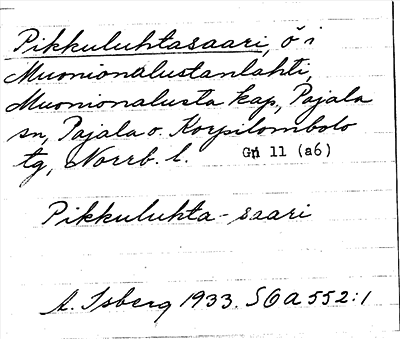 Pikkuluhtasaari, ö i
Muonionalustanlahti,
Muonionalusta kap, Pajala
sn, Pajala o. Korpilombolo
tg, Norrb. l. Gn 11 (a6)
Pikkuluhta-saari
A. Isberg 1933. SOA 552:1